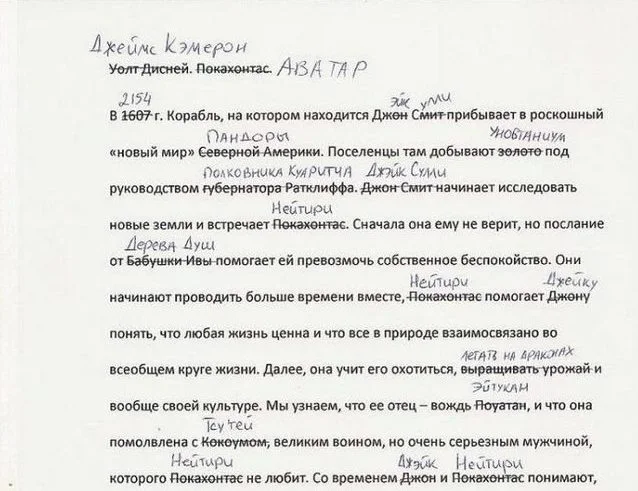 Джеймс Кэмерон
Уолт Дисней. Покахонтас. АВАТАР
2154 эйк улли
В 1607 г. Корабль, на котором находится Джон Смит прибывает в роскошный
ПАНДОРЫ Унобтаниум
«новый мир» Северной Америки. Поселенцы там добывают золото под
Полковника Куаритча Джэйк Сулли
руководством губернатора Ратклиффа. Джон Смит начинает исследовать
Нейтири
новые земли и встречает Покахонтас. Сначала она ему не верит, но послание
Дерева Душ
от Бабушки Ивы помогает ей превозмочь собственное беспокойство. Они
Нейтири Джейку
начинают проводить больше времени вместе, Покахонтас помогает Джону
понять, что любая жизнь ценна и что все в природе взаимосвязано во
летать на драконах
всеобщем круге жизни. Далее, она учит его охотиться, выращивать урожай и
Эйтукан
вообще своей культуре. Мы узнаем, что ее отец – вождь Поуатан, и что она
Тсу'тей
помолвлена с Кокоумом, великим воином, но очень серьезным мужчиной,
Нейтири Джэйк Нейтири
которого Покахонтас не любит. Со временем Джон и Покахонтас понимают,